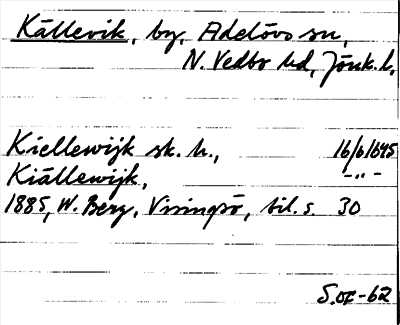 Källevik, by, Adelövs sn,
N. Vedbo hd, Jönk. l.
Kiellewijk sk. h., 16/6 1645
Kiällewijk, -"-
1885, W. Berg, Visingsö, bil. s. 30
S.OE-62